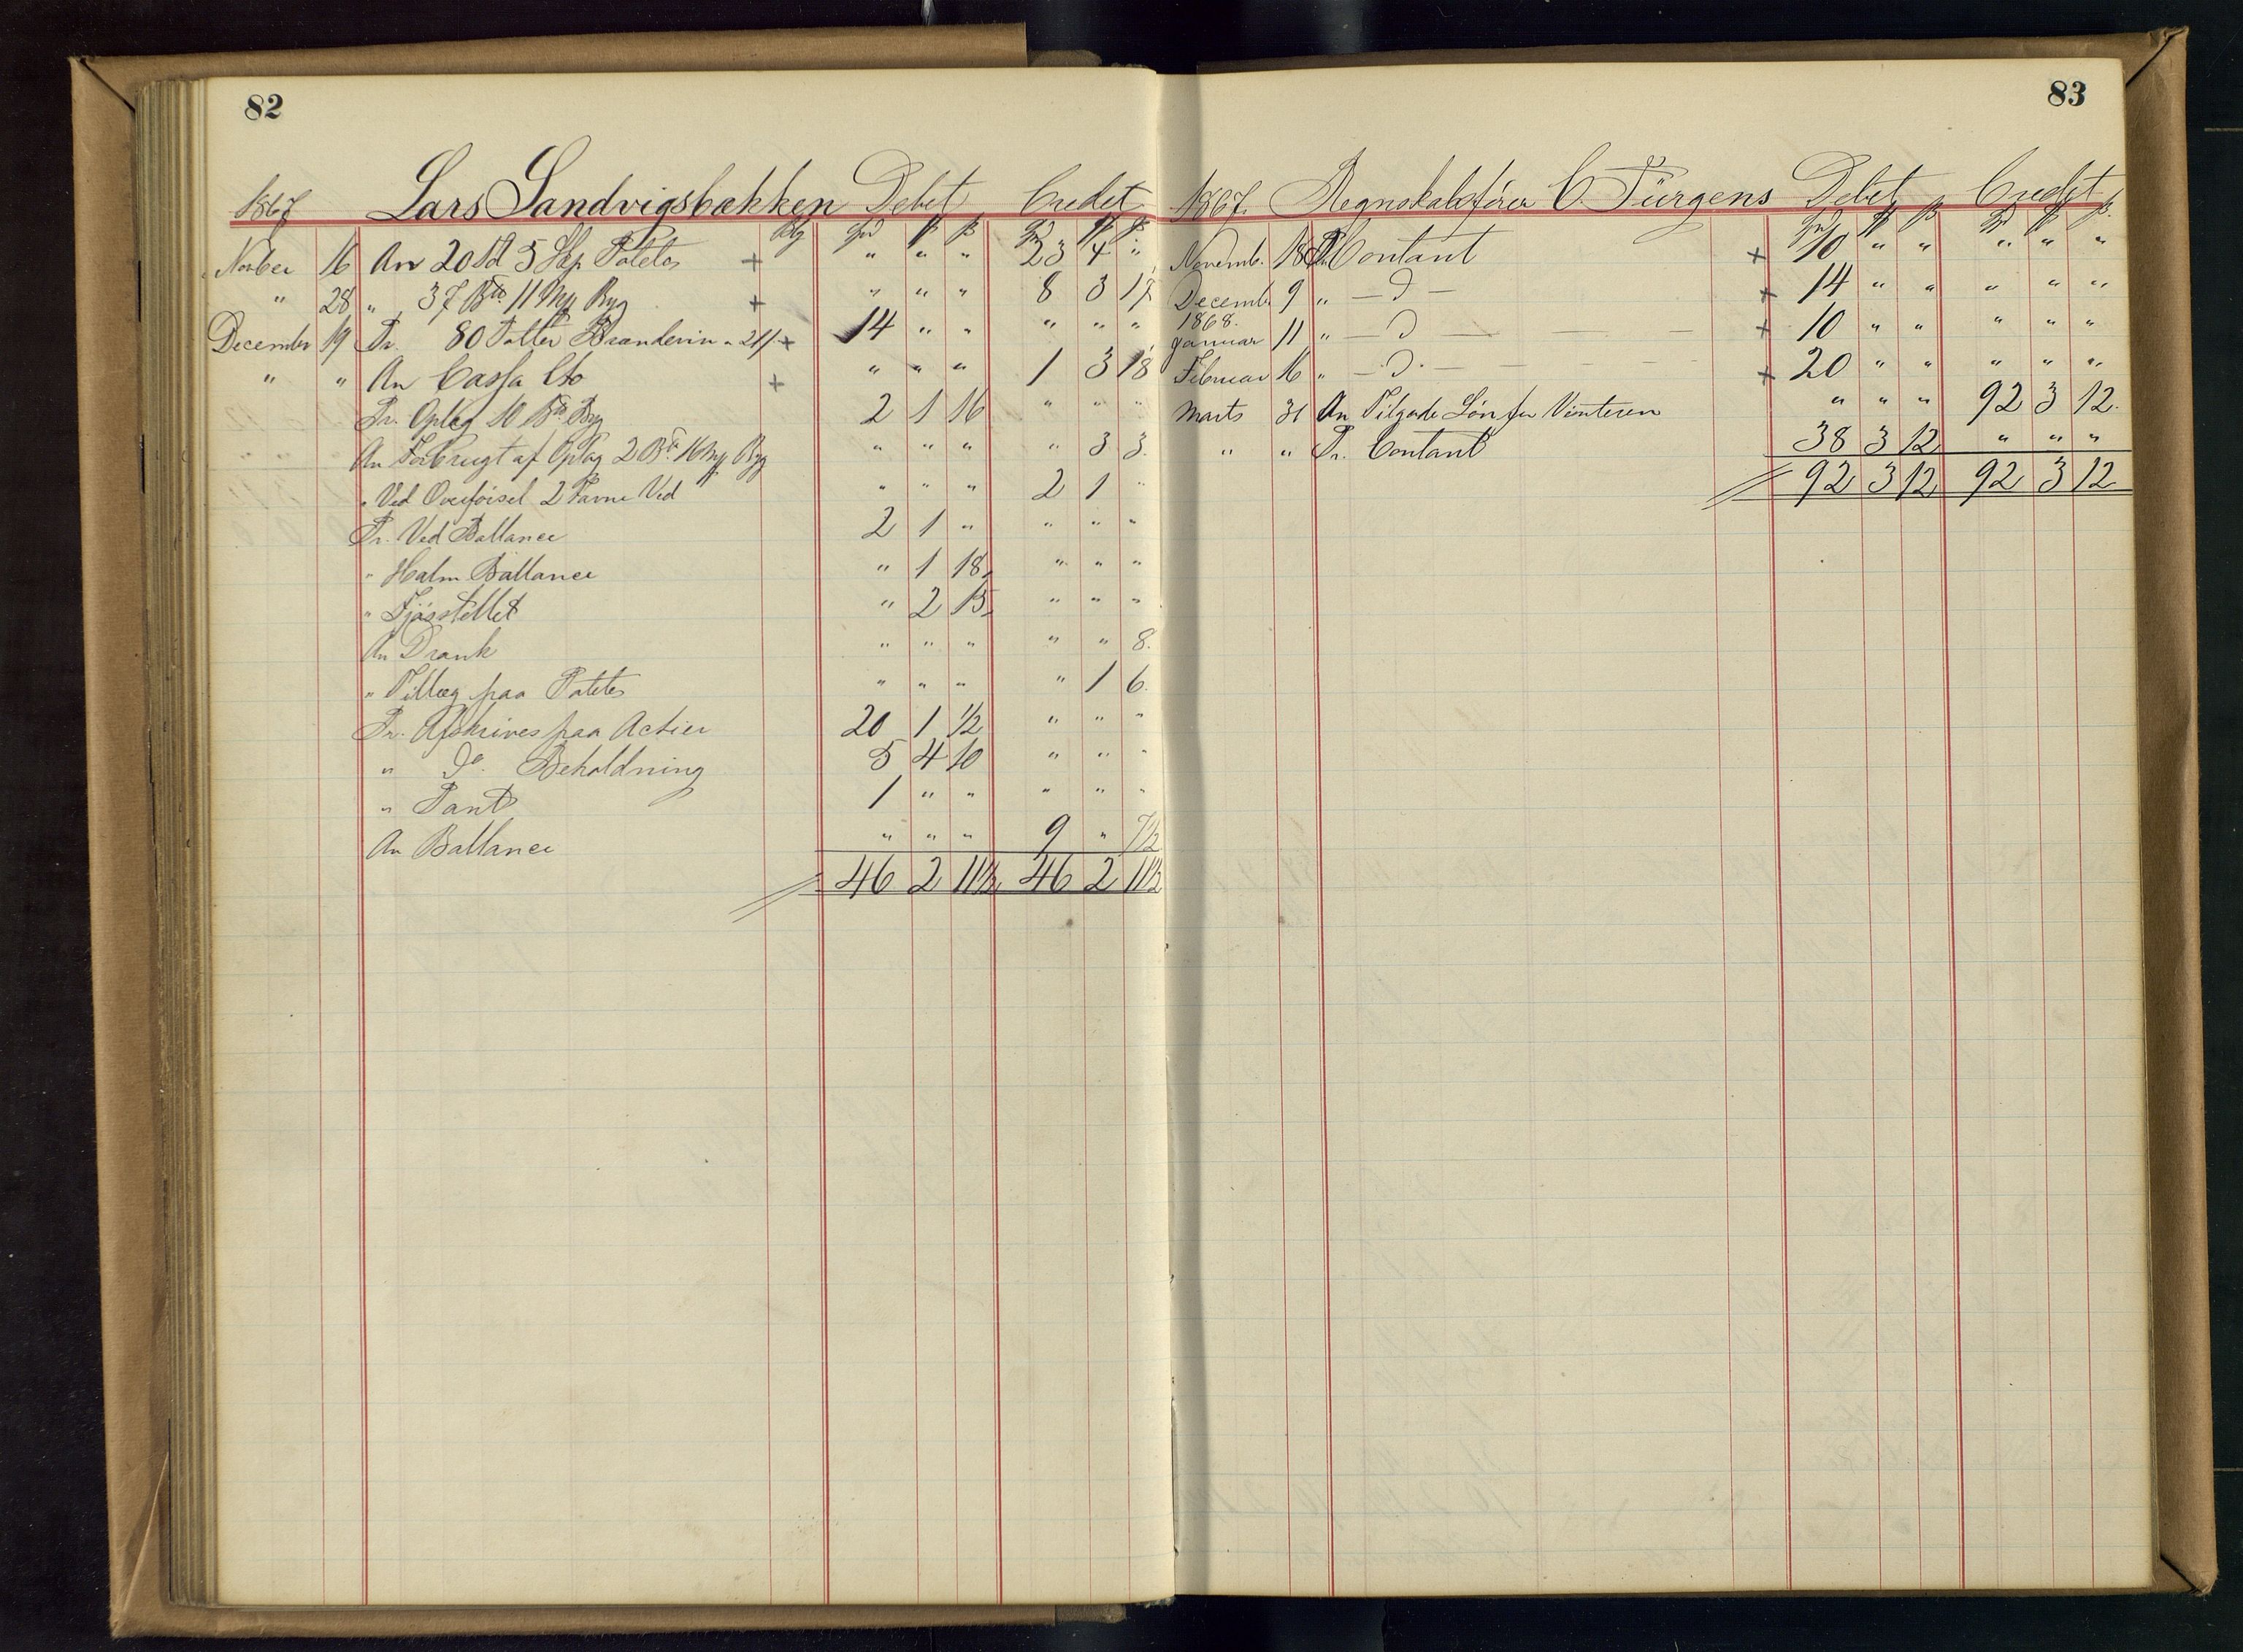 82
1867 Lars Sandvigsbækken Debet Credet
Spd ß Spd ß
Novber 16 An 20 Td 5 Skp Potetes + " " " 23 4 "
" 28 " 37 11 Mk Byg + " " " 8 3 17
December 19 Pr. 80 Potter Brændeviin a 21/ + 14 " " " " "
" " An Cassa Cto + " " " 1 3 18
Pr. Oplag 10 Byg 2 1 16 " " "
An Forbrugt af Oplag 2 16 Mk Byg " " " " 3 3.
" Ved Overføisel 2 Favne Ved " " " 2 1 "
Pr. Ved Ballance 2 1 " " " "
" Halm Ballance " 1 18 " " "
" Fjøsstellet " 2 15 " " "
An Drank " " " " " 8.
" Tillæg paa Potetes " " " " 1 6.
Pr. Afskrives paa Actier 20 1 1/2 " " "
" Do. Beholdning 5 4 10 " " "
" Pant 1 " " " " "
An Ballance " " " 9 " 7 1/2
46 2 11 1/2 46 2 11 1/2
83
1867. Regnskabsfører C. Jürgens Debet Credet
Spd ß Spd ß
Novemb. 18 Pr Contant + 10 " " " " "
Decemb 9 " — D — + 14 " " " " "
1868.
Januar 11 " — D — + 10 " " " " "
Februar 16 " — D. — + 20 " " " " "
Marts 31 An Tilgode Løn for Vinteren " " " 92 3 12.
" " Pr. Contant 38 3 12 " " "
92 3 12 92 3 12